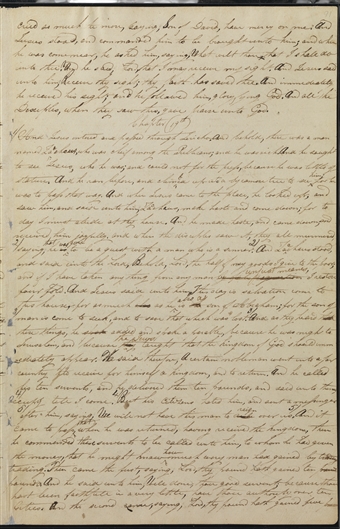 cried so much the more, saying, Son of David, have mercy on me. And
Jesus stood, and commanded him to be brought unto him; and when
he was come near, he asked him, saying, What wilt thou that I shall do
unto thee? And he said, Lord, that I may receive my sight. And Jesus said
unto him, Receive thy sight; thy faith has saved thee. And immediately
he received his sight, and he followed him, glorifying God. And all the
when they saw this, gave praise unto God.
Chapter 19th
And Jesus entered and passed through Jericho. And behold, there was a man
named who was chief among the Publicans; and he was rich. And he sought
to see Jesus, who he was, and could not for the press, because he was little of
stature. And he ran before, and climbed up into a sycamore tree to see him
was to pass that way. And when Jesus came to the place, he looked up, and
saw him, and said unto him, make haste, and come down; for to
day I must abide at thy house. And he made haste, and came down, and
received him joyfully. And when the saw it, they all murmured
saying to be a guest with a man who is a sinner. And
and said unto the Lord, Behold, Lord, the half of my goods I give to the poor
and if I have taken any thing from any man I restore
four fold. And Jesus said unto him, This day is salvation come to
this house, as he is a son of Abraham; for the son of
man is come to seek, and to save that which was lost. And as they heard
these things, he added and spake a parable, because he was nigh to
Jerusalem, and because thought that the kingdom of God should
appear. He said therefore, A certain nobleman went into a far
country to receive for himself a kingdom, and to return. And he called
his ten servants, and delivered them ten pounds, and said unto them
till I come. But his citizens hated him, and sent a message
after him, saying, We will not have this man to reign over us. And it
came to pass when he was returned, having received the kingdom, then
he commanded these servants to be called unto him, to whom he had given
the money, that he might know how much every man had gained by
trading. Then came the first, saying, Lord, thy pound hath gained ten
pounds. And he said unto him, Well done, thou good servant; because thou
hast been faithful in a very little, have thou authority over ten
cities. And the second came, saying, Lord, thy pound hath gained five